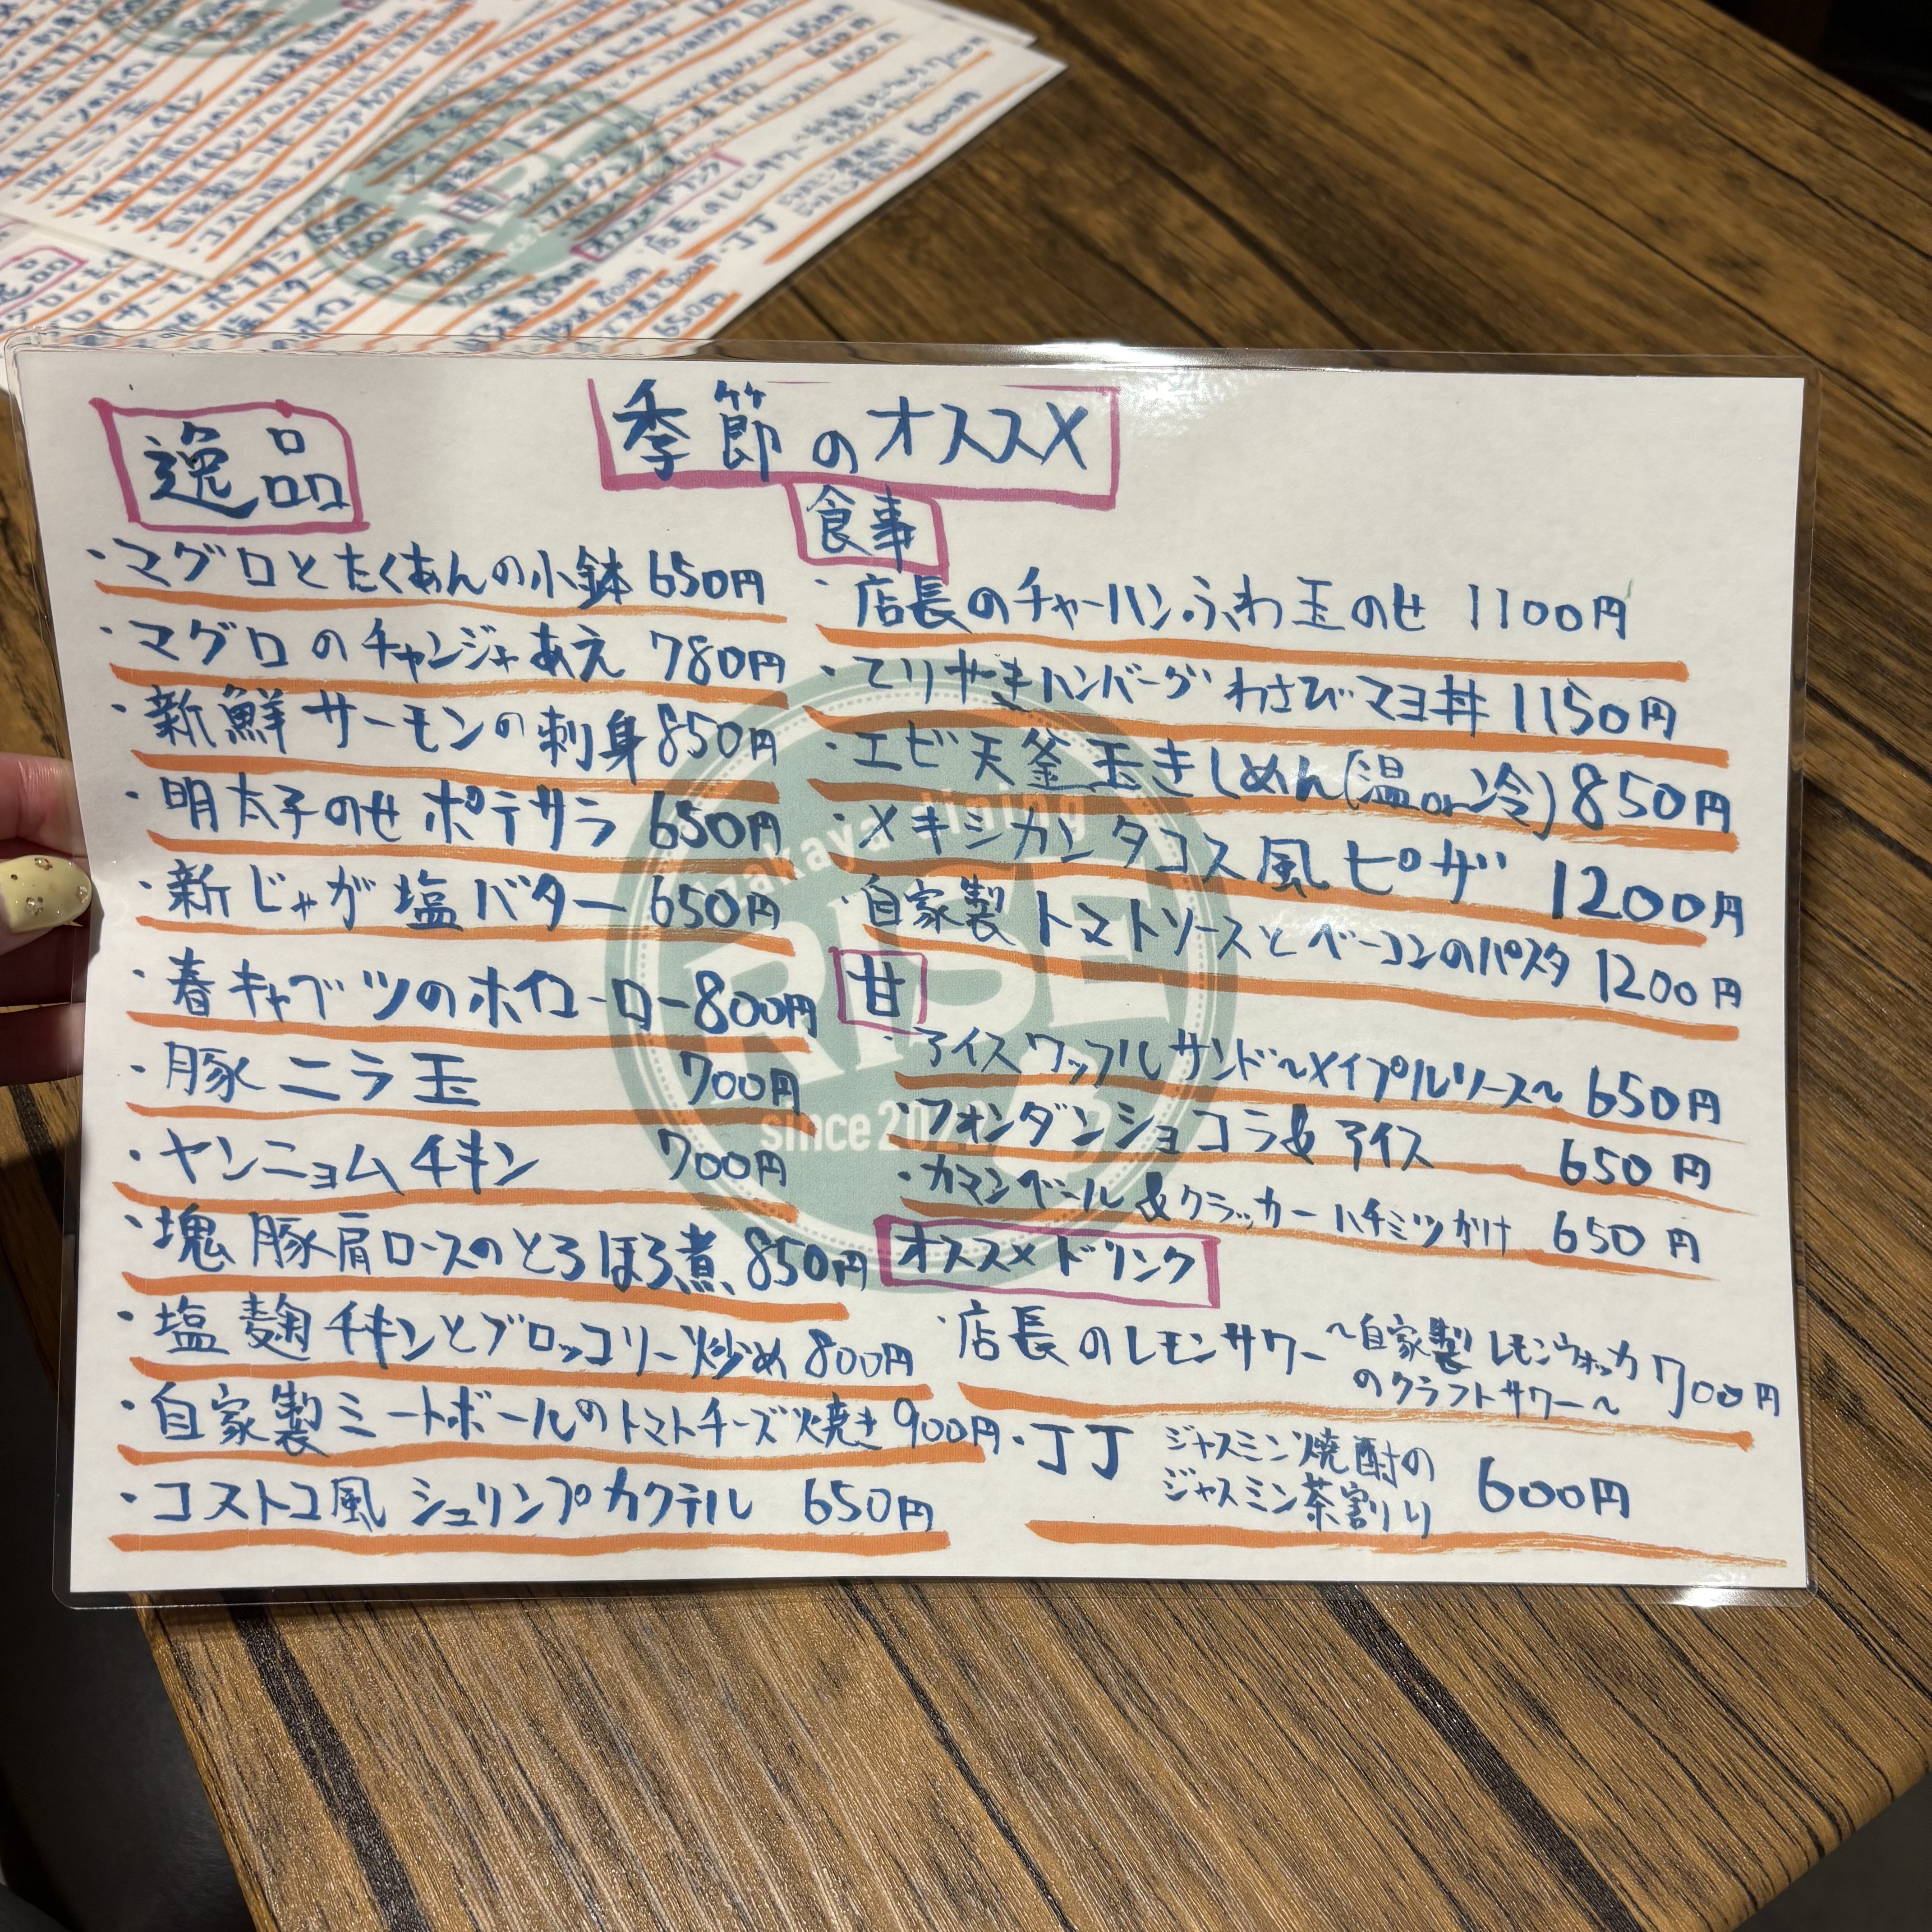 季節のオススメ
逸品
・マグロとたくあんの小鉢 650円
・マグロのチャンジャあえ 780円
・新鮮サーモンの刺身 850円
・明太子のせポテサラ 650円
・新じゃが塩バター 650円
・春キャベツのホイコーロー 800円
・豚ニラ玉 700円
・ヤンニョムチキン 700円
・塊豚肩ロースのとろほろ煮 850円
・塩麹チキンとブロッコリー炒め 800円
・自家製ミートボールのトマトチーズ焼き 900円
・コストコ風シュリンプカクテル 650円
食事
・店長のチャーハンふわ玉のせ 1100円
・てりやきハンバーグわさびマヨ丼 1150円
・エビ天釜玉きしめん(温or冷) 850円
・メキシカンタコス風ピザ 1200円
・自家製トマトソースとベーコンのパスタ 1200円
甘
・アイスワッフルサンド〜メイプルソース〜 650円
・フォンダンショコラ&アイス 650円
・カマンベール&クラッカーハチミツがけ 650円
オススメドリンク
・店長のレモンサワー 〜自家製レモンウォッカ
のクラフトサワー〜 700円
・JJ ジャスミン焼酎の
ジャスミン茶割り 600円
izakaya dining
RISE
since 2022